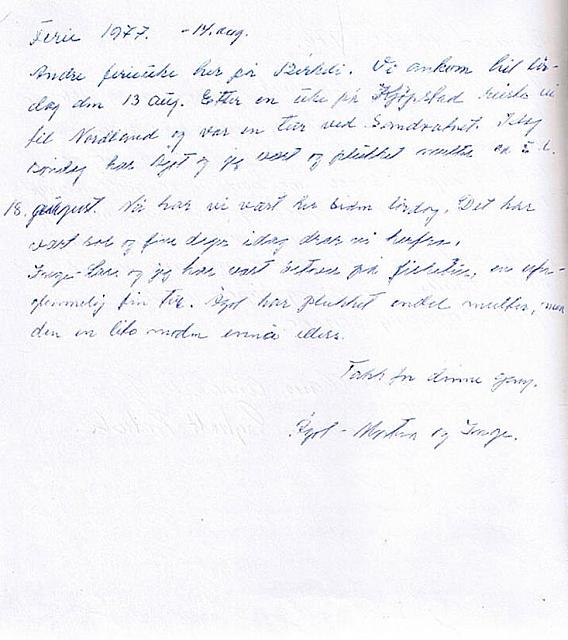 Ferie 1977. - 14. aug.
Andre ferieuke her på. Vi ankom hit lør-
dag den 13 aug. Etter en uke på Kjøpstad reiste vi
til Nordland og var en tur ved Sandvatnet. I dag
søndag har og jeg vært og plukket multer ca 5 l.
18. august. Nå har vi vært her siden lørdag. Det har
vært sol og fine dager idag drar vi herfra.
Inge- og jeg har vært på fisketur, en ufor-
glemmelig fin tur. har plukket endel multer, men
den en lite moden ennå ellers.
Takk for denne gang.
og Inge.